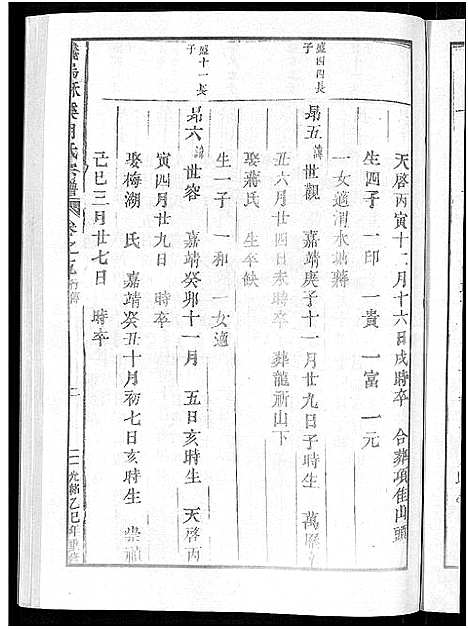 天啓丙寅十二月十六日戌時卒　合葬項佳山頭
生四子　一印　一貴　一富　一元
一女適渭水姚蔣
盛四四長子
昴五諱世觀　嘉靖庚子十一月廿九日子時生　萬曆
丑六月廿四日未時卒　葬龍祈山下
娶蔣氏　生卒缺
生一子　一和　一女適
盛十一長子
昴六諱世容　嘉靖癸卯十一月　五日亥時生　天啓丙
寅四月廿九日　時卒
娶梅湖　氏　嘉靖癸丑十月初七日亥時生　崇禎
己巳三月廿七日　時卒
氏宗譜　卷之　行傳　二　光緒乙巳年重修